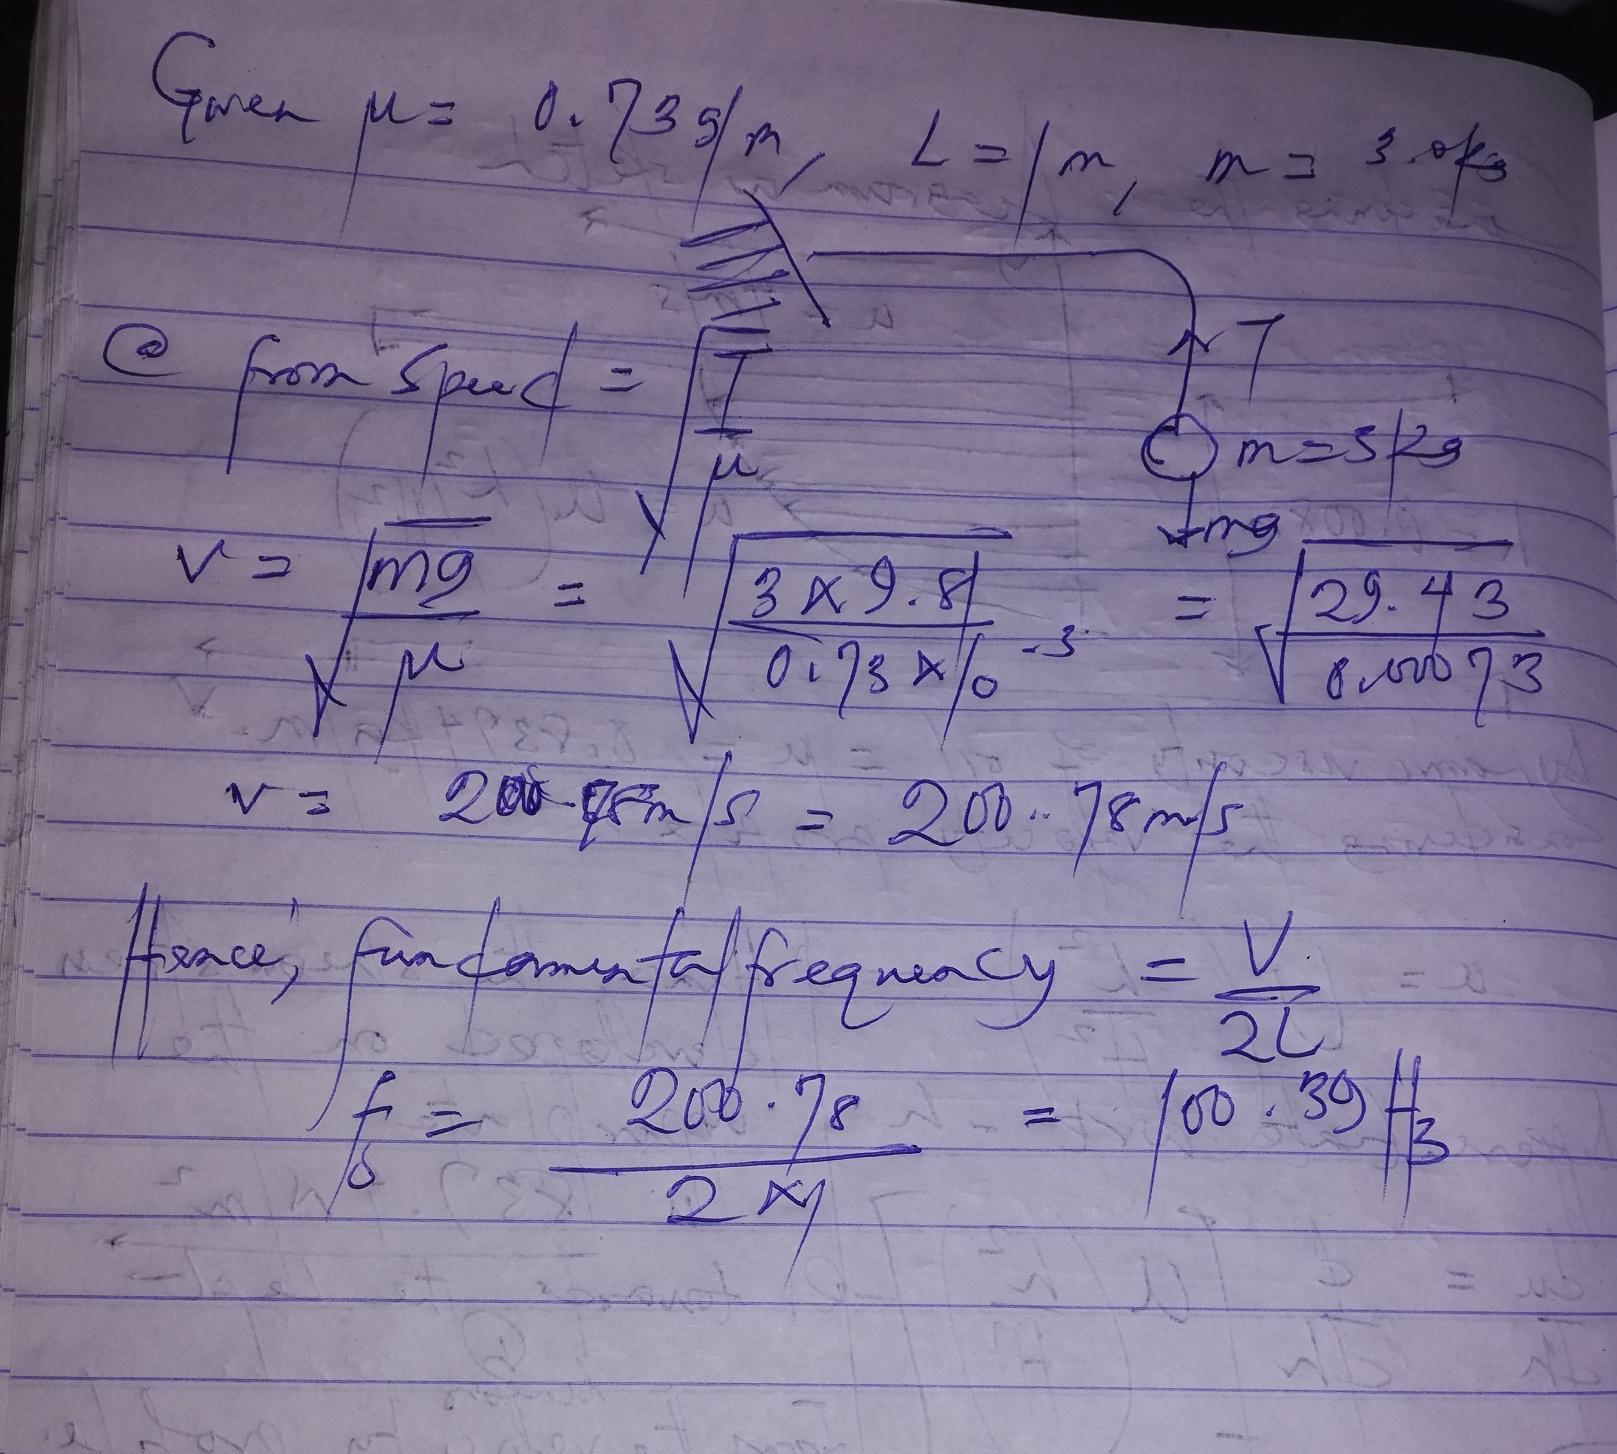 Given μ = 0.73g/m, L = 1m, m = 3.0kg
T
@ from speed = √(T/μ)
m=3kg
mg
v = √(mg/μ) = √(3×9.81/0.73×10⁻³) = √(29.43/0.00073)
v = 200.78m/s = 200.78m/s
Hence, fundamental frequency = V/2L
f₀ = 200.78/2×1 = 100.39Hz